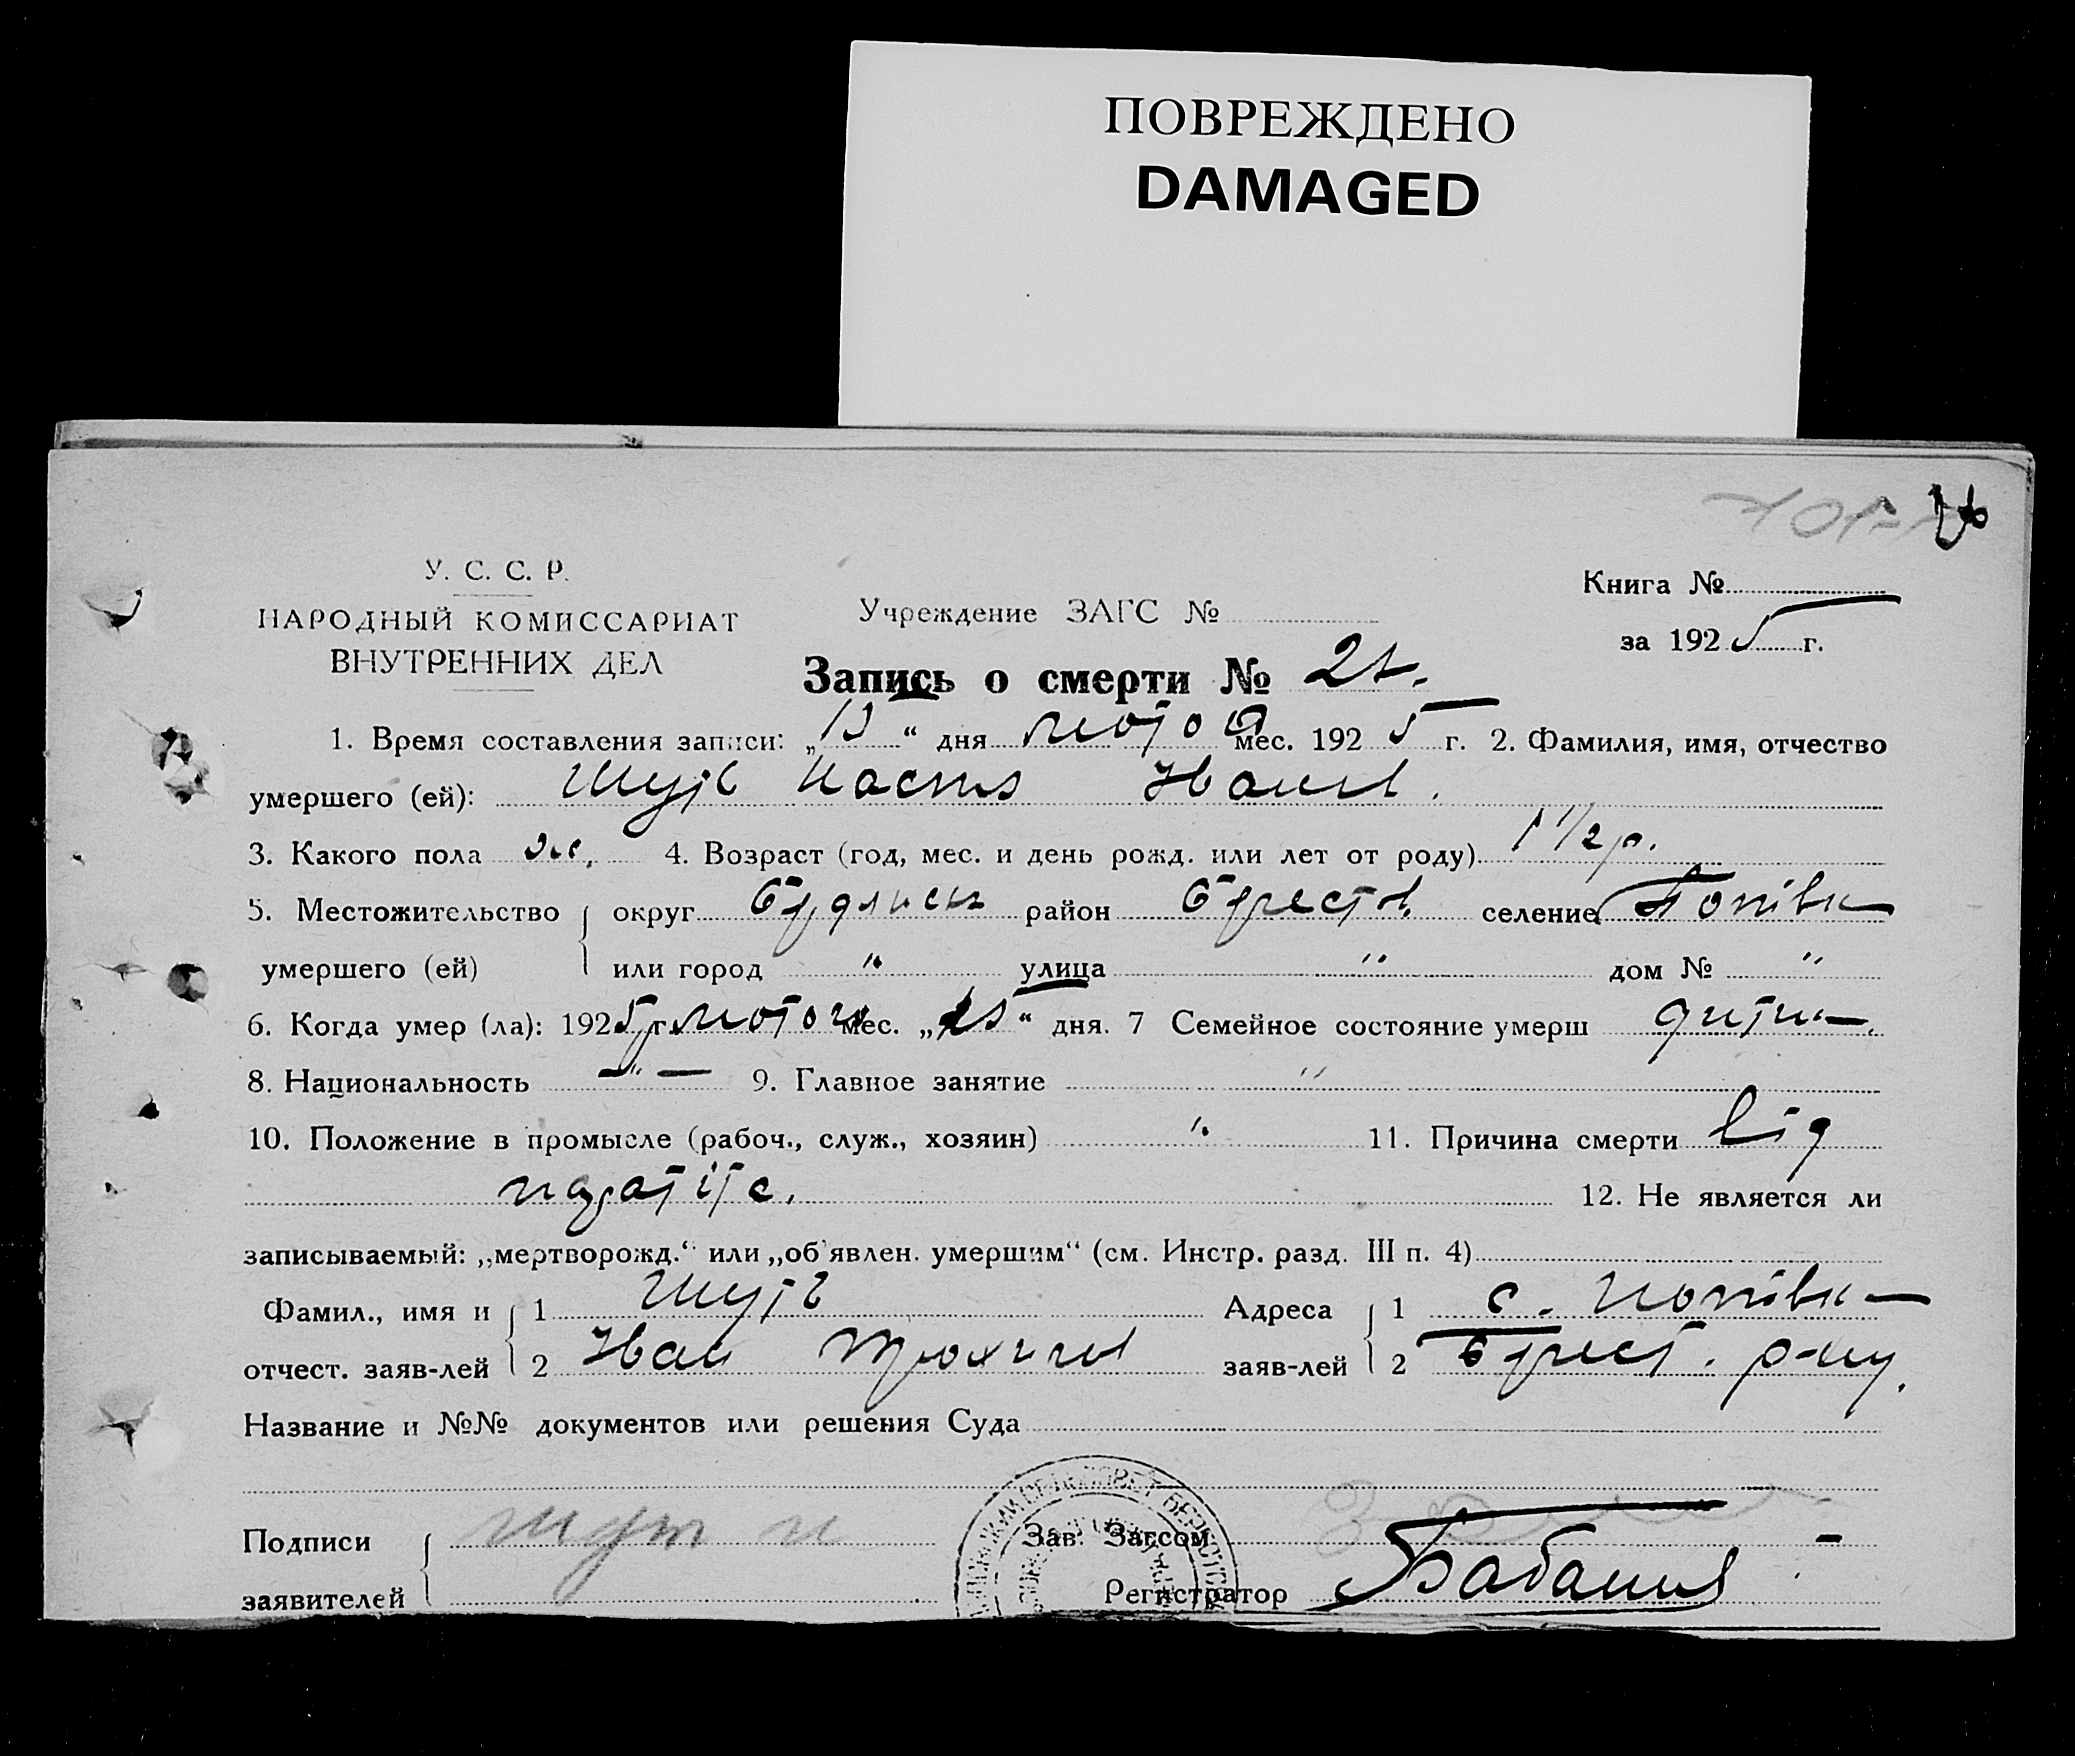 ПОВРЕЖДЕНО
DAMAGED
У. С. С. Р.
НАРОДНЫЙ КОМИССАРИАТ
ВНУТРЕННИХ ДЕЛ
Учреждение ЗАГС №
Книга №
за 1925 г.
Запись о смерти №
1. Время составления записи: „13“ дня лютого мес. 1925 г. 2. Фамилия, имя, отчество
умершего (ей): Шуть Настя Иван.
3. Какого пола ж. 4. Возраст (год, мес. и день рожд. или лет от роду) 1 1/2 р.
5. Местожительство округ район селение Попівка
умершего (ей) или город " улица " дом № "
6. Когда умер (ла): 1925 г. лютого мес. „ “ дня. 7 Семейное состояние умерш дитина.
8. Национальность — " — 9. Главное занятие "
10. Положение в промысле (рабоч., служ., хозяин) " 11. Причина смерти від
12. Не является ли
записываемый: „мертворожд.“ или „об'явлен. умершим“ (см. Инстр. разд. III п. 4)
Фамил., имя и 1 Шуть Адреса 1 с. Попівка
отчест. заяв-лей 2 Иван заяв-лей 2 Брест. р-ну.
Название и №№ документов или решения Суда
Подписи Шут И Зав. Загсом
заявителей Регистратор